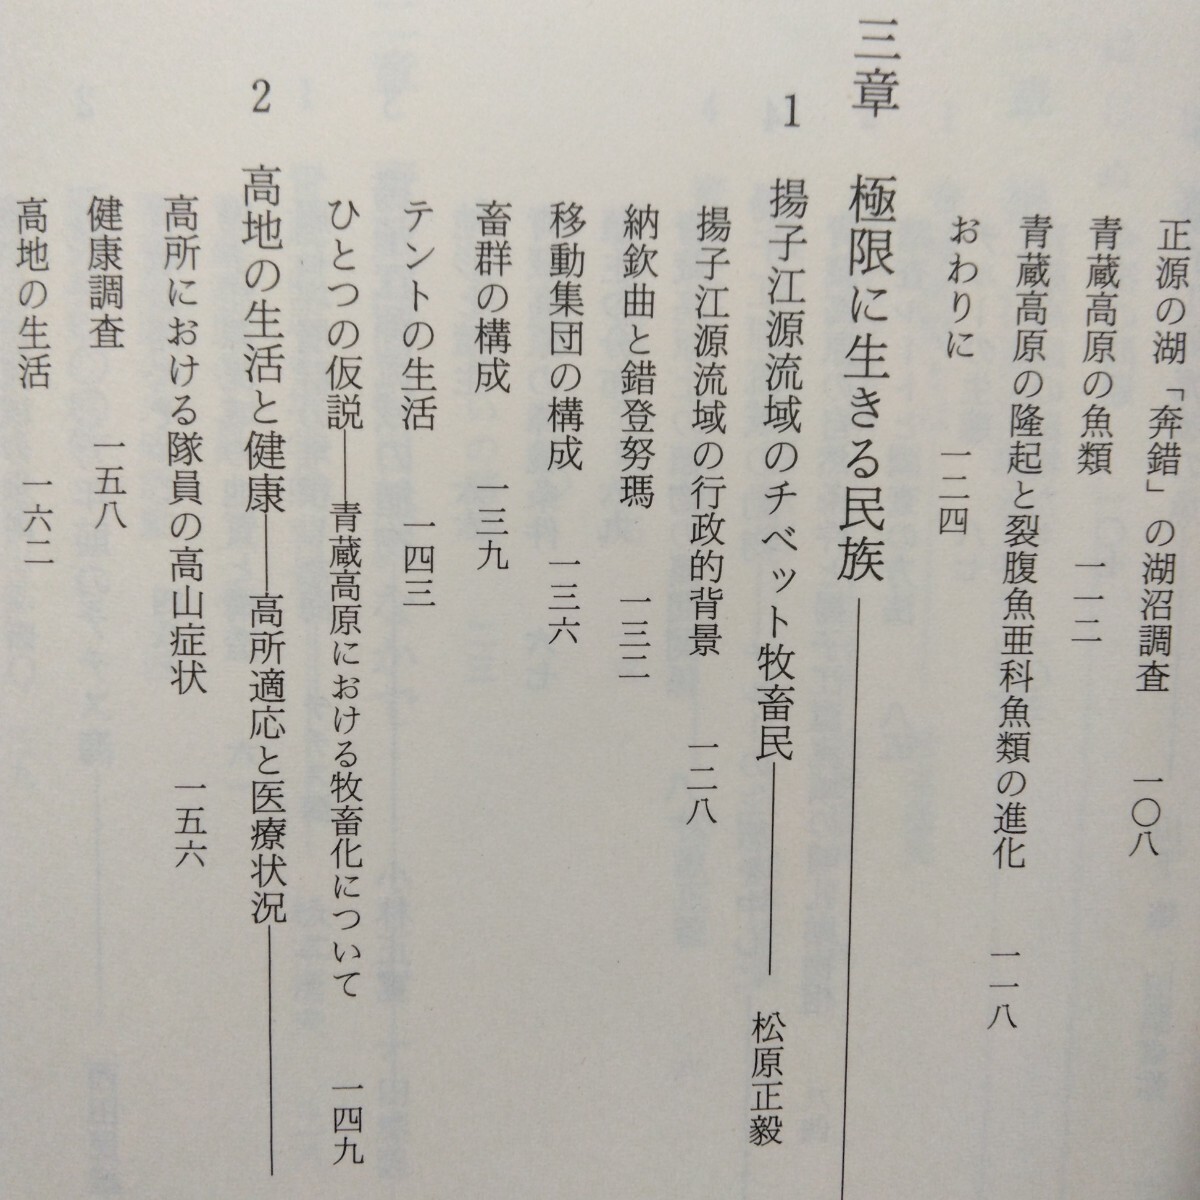 正源の湖「奔錯」の湖沼調査　一〇八
青蔵高原の魚類　一一二
青蔵高原の隆起と裂腹魚亜科魚類の進化　一一八
おわりに　一二四
三章　極限に生きる民族
1　揚子江源流域のチベット牧畜民――松原正毅
揚子江源流域の行政的背景　一二八
納欽曲と錯登努瑪　一三二
移動集団の構成　一三六
畜群の構成　一三九
テントの生活　一四三
ひとつの仮説――青蔵高原における牧畜化について　一四九
2　高地の生活と健康――高所適応と医療状況――
高所における隊員の高山症状　一五六
健康調査　一五八
高地の生活　一六二